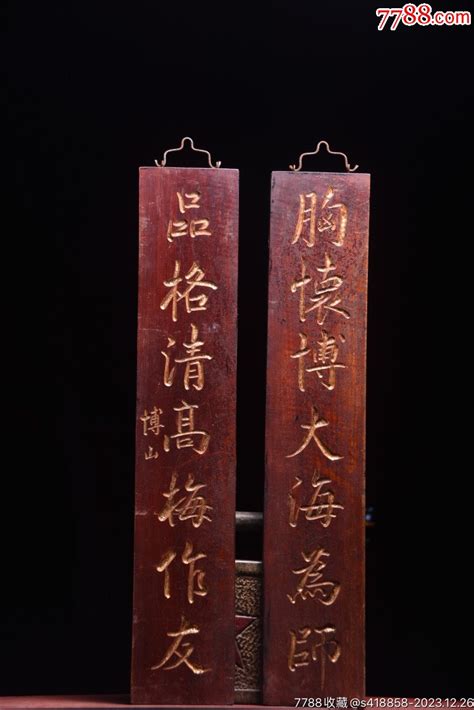 7788.com
胸懷博大海為師
品格清高梅作友
博山
7788收藏@s418858-2023.12.26